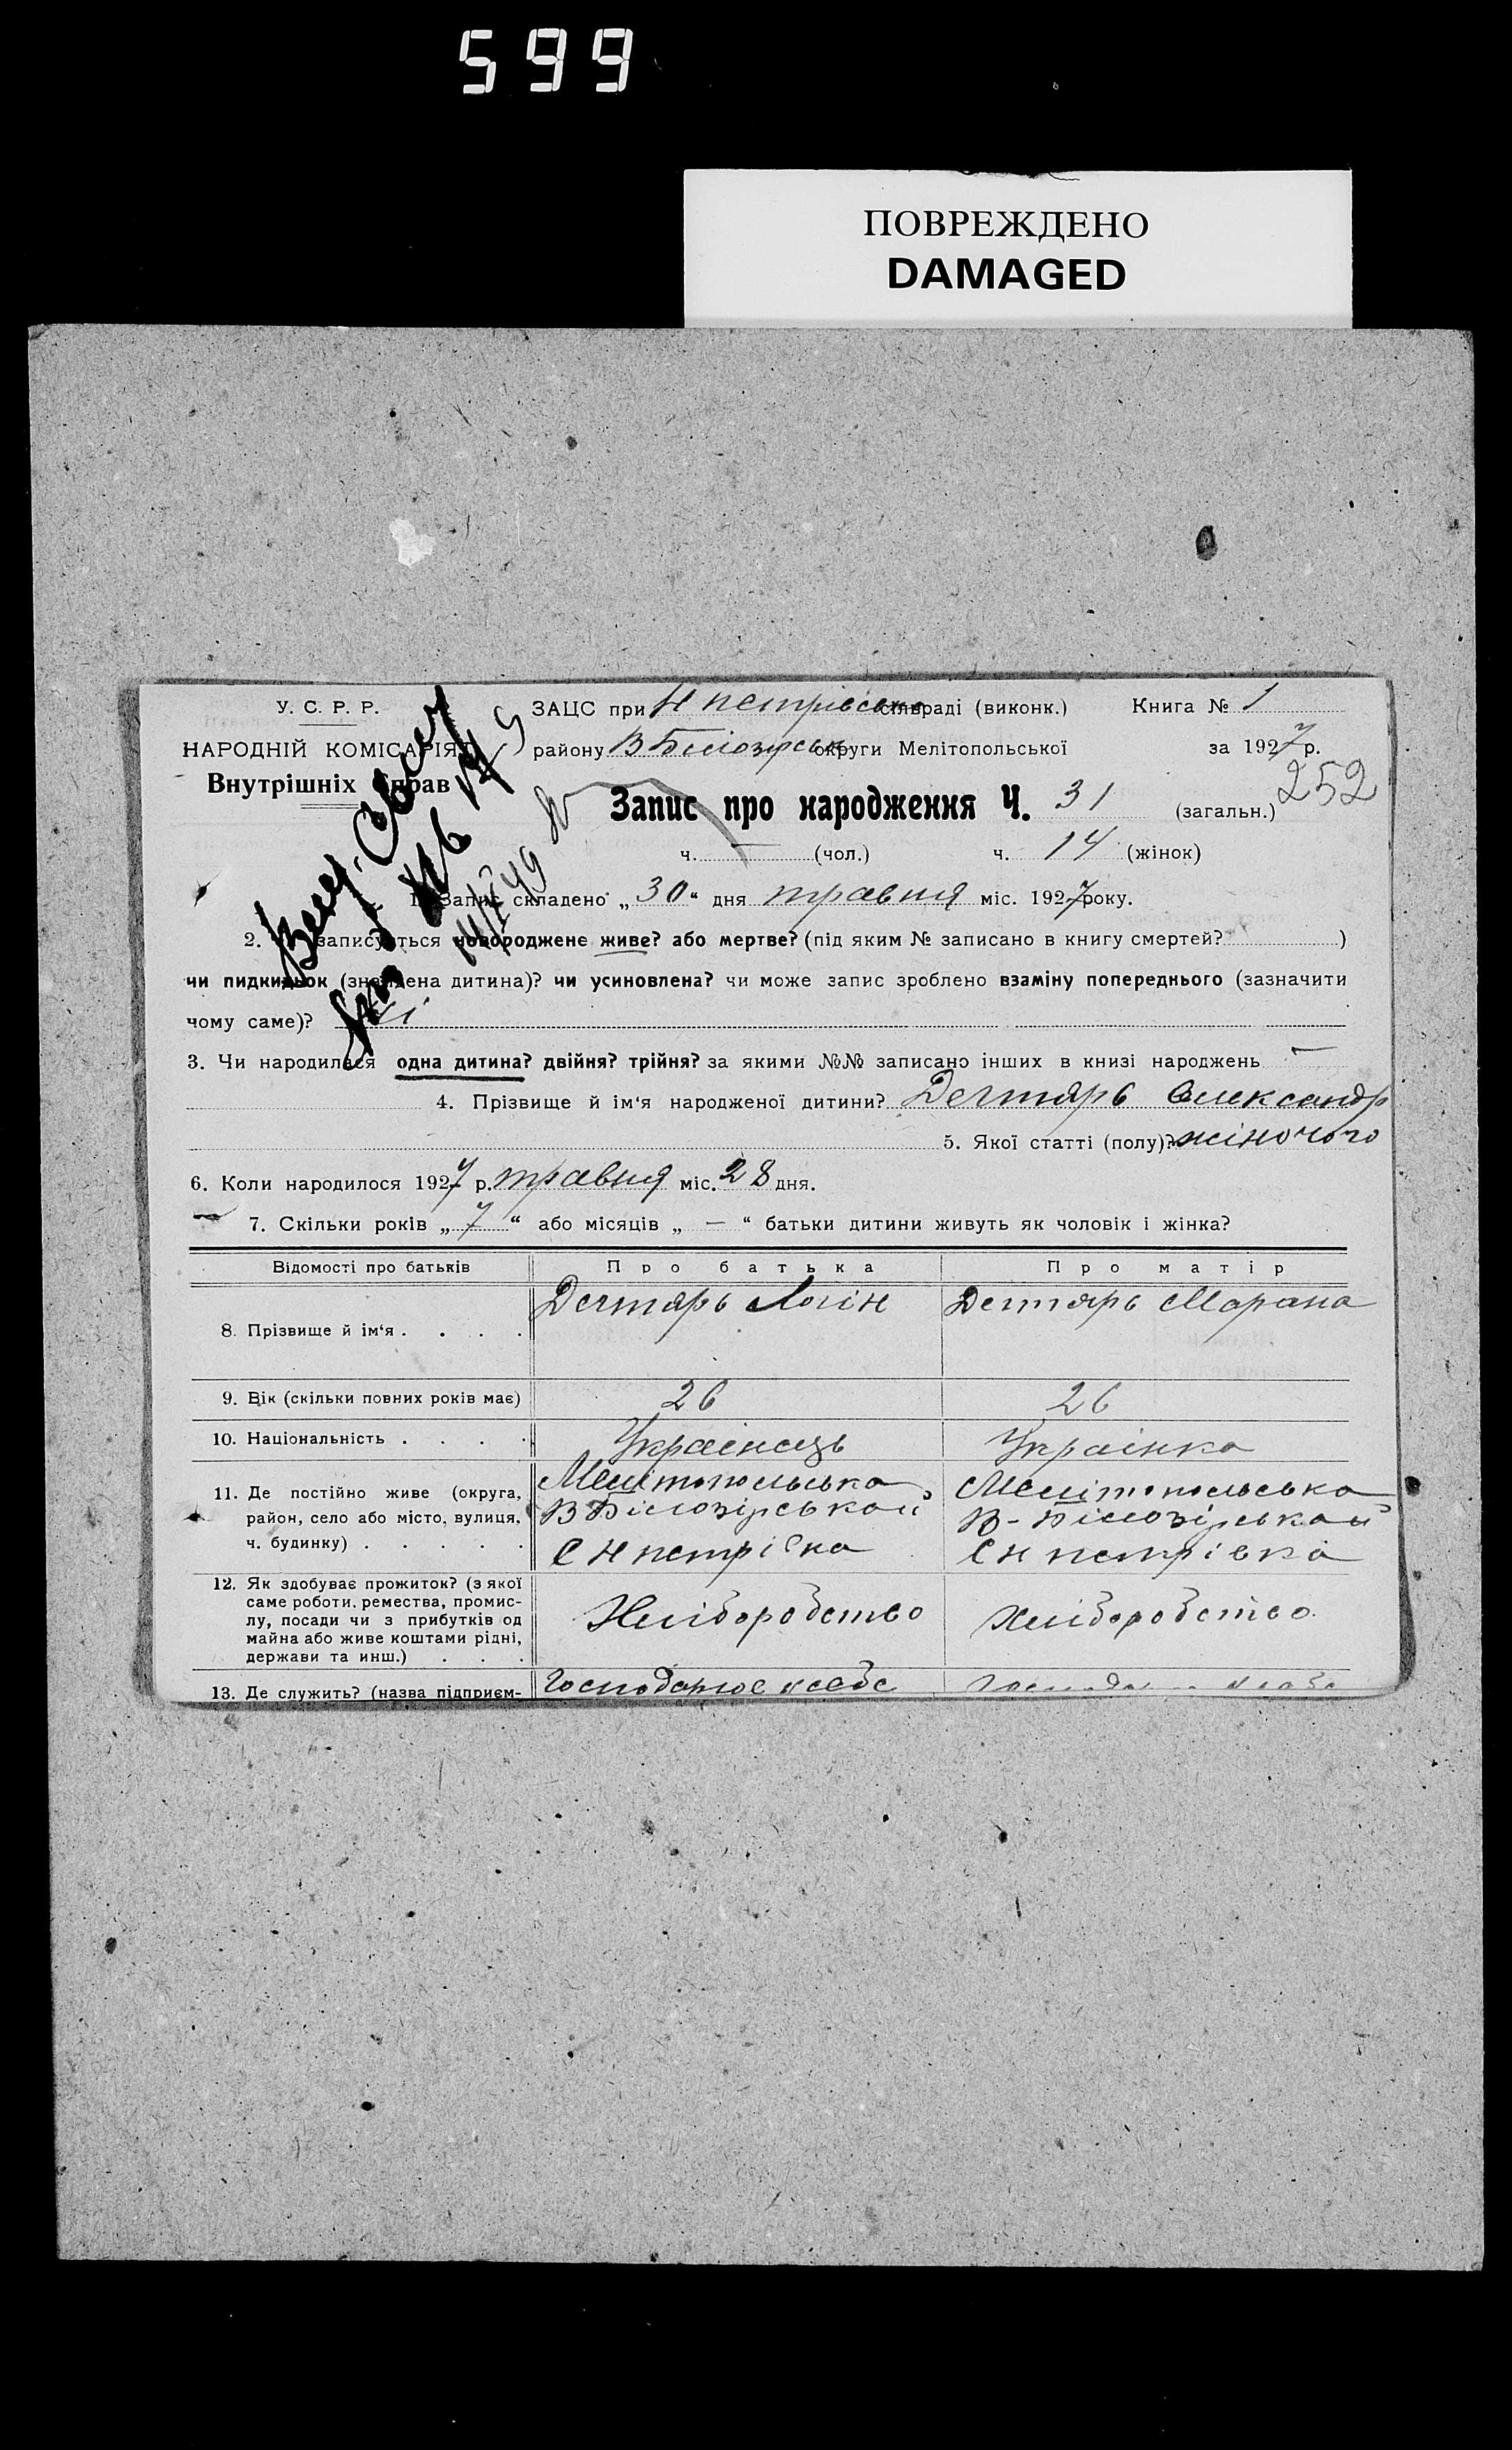 599
ПОВРЕЖДЕНО
DAMAGED
У. С. Р. Р.
НАРОДНІЙ КОМІСАРІЯТ
Внутрішніх Справ
ЗАЦС при Н петрівськ сільраді (виконк.) Книга № 1
району В Білозірськ округи Мелітопольської за 1927 р.
252
Запис про народження Ч. 31 (загальн.)
ч. — (чол.) ч. 14 (жінок)
1. Запис складено „30“ дня травня міс. 1927 року.
2. записується новороджене живе? або мертве? (під яким № записано в книгу смертей? )
чи пидкидьок (знайдена дитина)? чи усиновлена? чи може запис зроблено взаміну попереднього (зазначити
чому саме)?
3. Чи народилася одна дитина? двійня? трійня? за якими №№ записано інших в книзі народжень —
4. Прізвище й ім'я народженої дитини? Дегтярь Олександр
5. Якої статті (полу)? жіночого
6. Коли народилося 1927 р. травня міс. 28 дня.
7. Скільки років „7“ або місяців „—“ батьки дитини живуть як чоловік і жінка?
Відомості про батьків Про батька Про матір
8. Прізвище й ім'я . . . . Дегтярь Логін Дегтярь Марана
9. Вік (скільки повних років має) 26 26
10. Національність . . . . Українець Українка
11. Де постійно живе (округа, район, село або місто, вулиця, ч. будинку) . . . . .
Мелітопольська Мелітопольська
В Білозірськай В-Білозірськай
С Н петрівка С Н петрівка
12. Як здобуває прожиток? (з якої саме роботи, ремества, промислу, посади чи з прибутків од майна або живе коштами рідні, держави та инш.) . . .
Хліборобство Хліборобство
13. Де служить? (назва підприєм- Господарює у себе